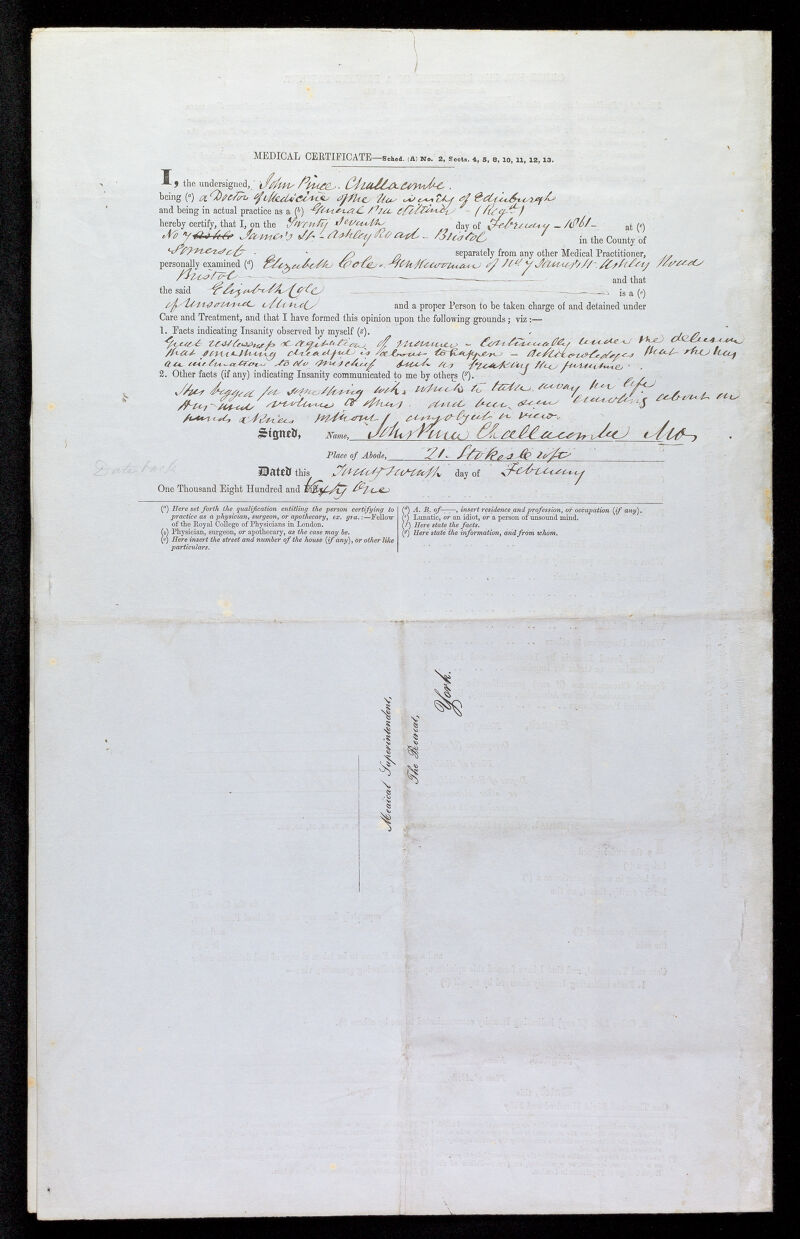 MEDICAL CERTIFICATE—Sched. (A) No. 2, Sects. 4, 5, 8, 10, 11, 12, 13.
I, the undersigned, John Prince Challacombe.
being (a) a Doctor of Medicine of the University of Edinburgh
and being in actual practice as a (b) General Practitioner (Regd)
hereby certify, that I, on the Twenty Seventh day of February - 1861 - at (c)
No 7 Ashle James's St - Ashley Road - Bristol in the County of
Somerset separately from any other Medical Practitioner,
personally examined (d) Elizabeth Cole - Gentlewoman of No 7 James's St. Ashley Road
Bristol and that
the said Elizabeth Cole is a (e)
of Unsound Mind and a proper Person to be taken charge of and detained under
Care and Treatment, and that I have formed this opinion upon the following grounds; viz:—
1. Facts indicating Insanity observed by myself (f).
Great restlessness & agitation of manner - Continually under the delusion
that something dreadful is about to happen - Acknowledges that she has
an inclination to do mischief such as breaking the furniture.
2. Other facts (if any) indicating Insanity communicated to me by others (g).
Has begged for something with which to take away her life
Has used violence to others. and been seen crawling about on
hands & knees without any object in view.
Signed, Name, John Prince Challacombe MD
Place of Abode, 21. Stokes Croft
Dated this Twenty seventh day of February
Date back
One Thousand Eight Hundred and Sixty One
(a) Here set forth the qualification entitling the person certifying to
practice as a physician, surgeon, or apothecary, ex. gra.:—Fellow
of the Royal College of Physicians in London.
(b) Physician, surgeon, or apothecary, as the case may be.
(c) Here insert the street and number of the house (if any), or other like
particulars.
(d) A. B. of——, insert residence and profession, or occupation (if any).
(e) Lunatic, or an idiot, or a person of unsound mind.
(f) Here state the facts.
(g) Here state the information, and from whom.
Medical Superintendent,
The Retreat,
York.